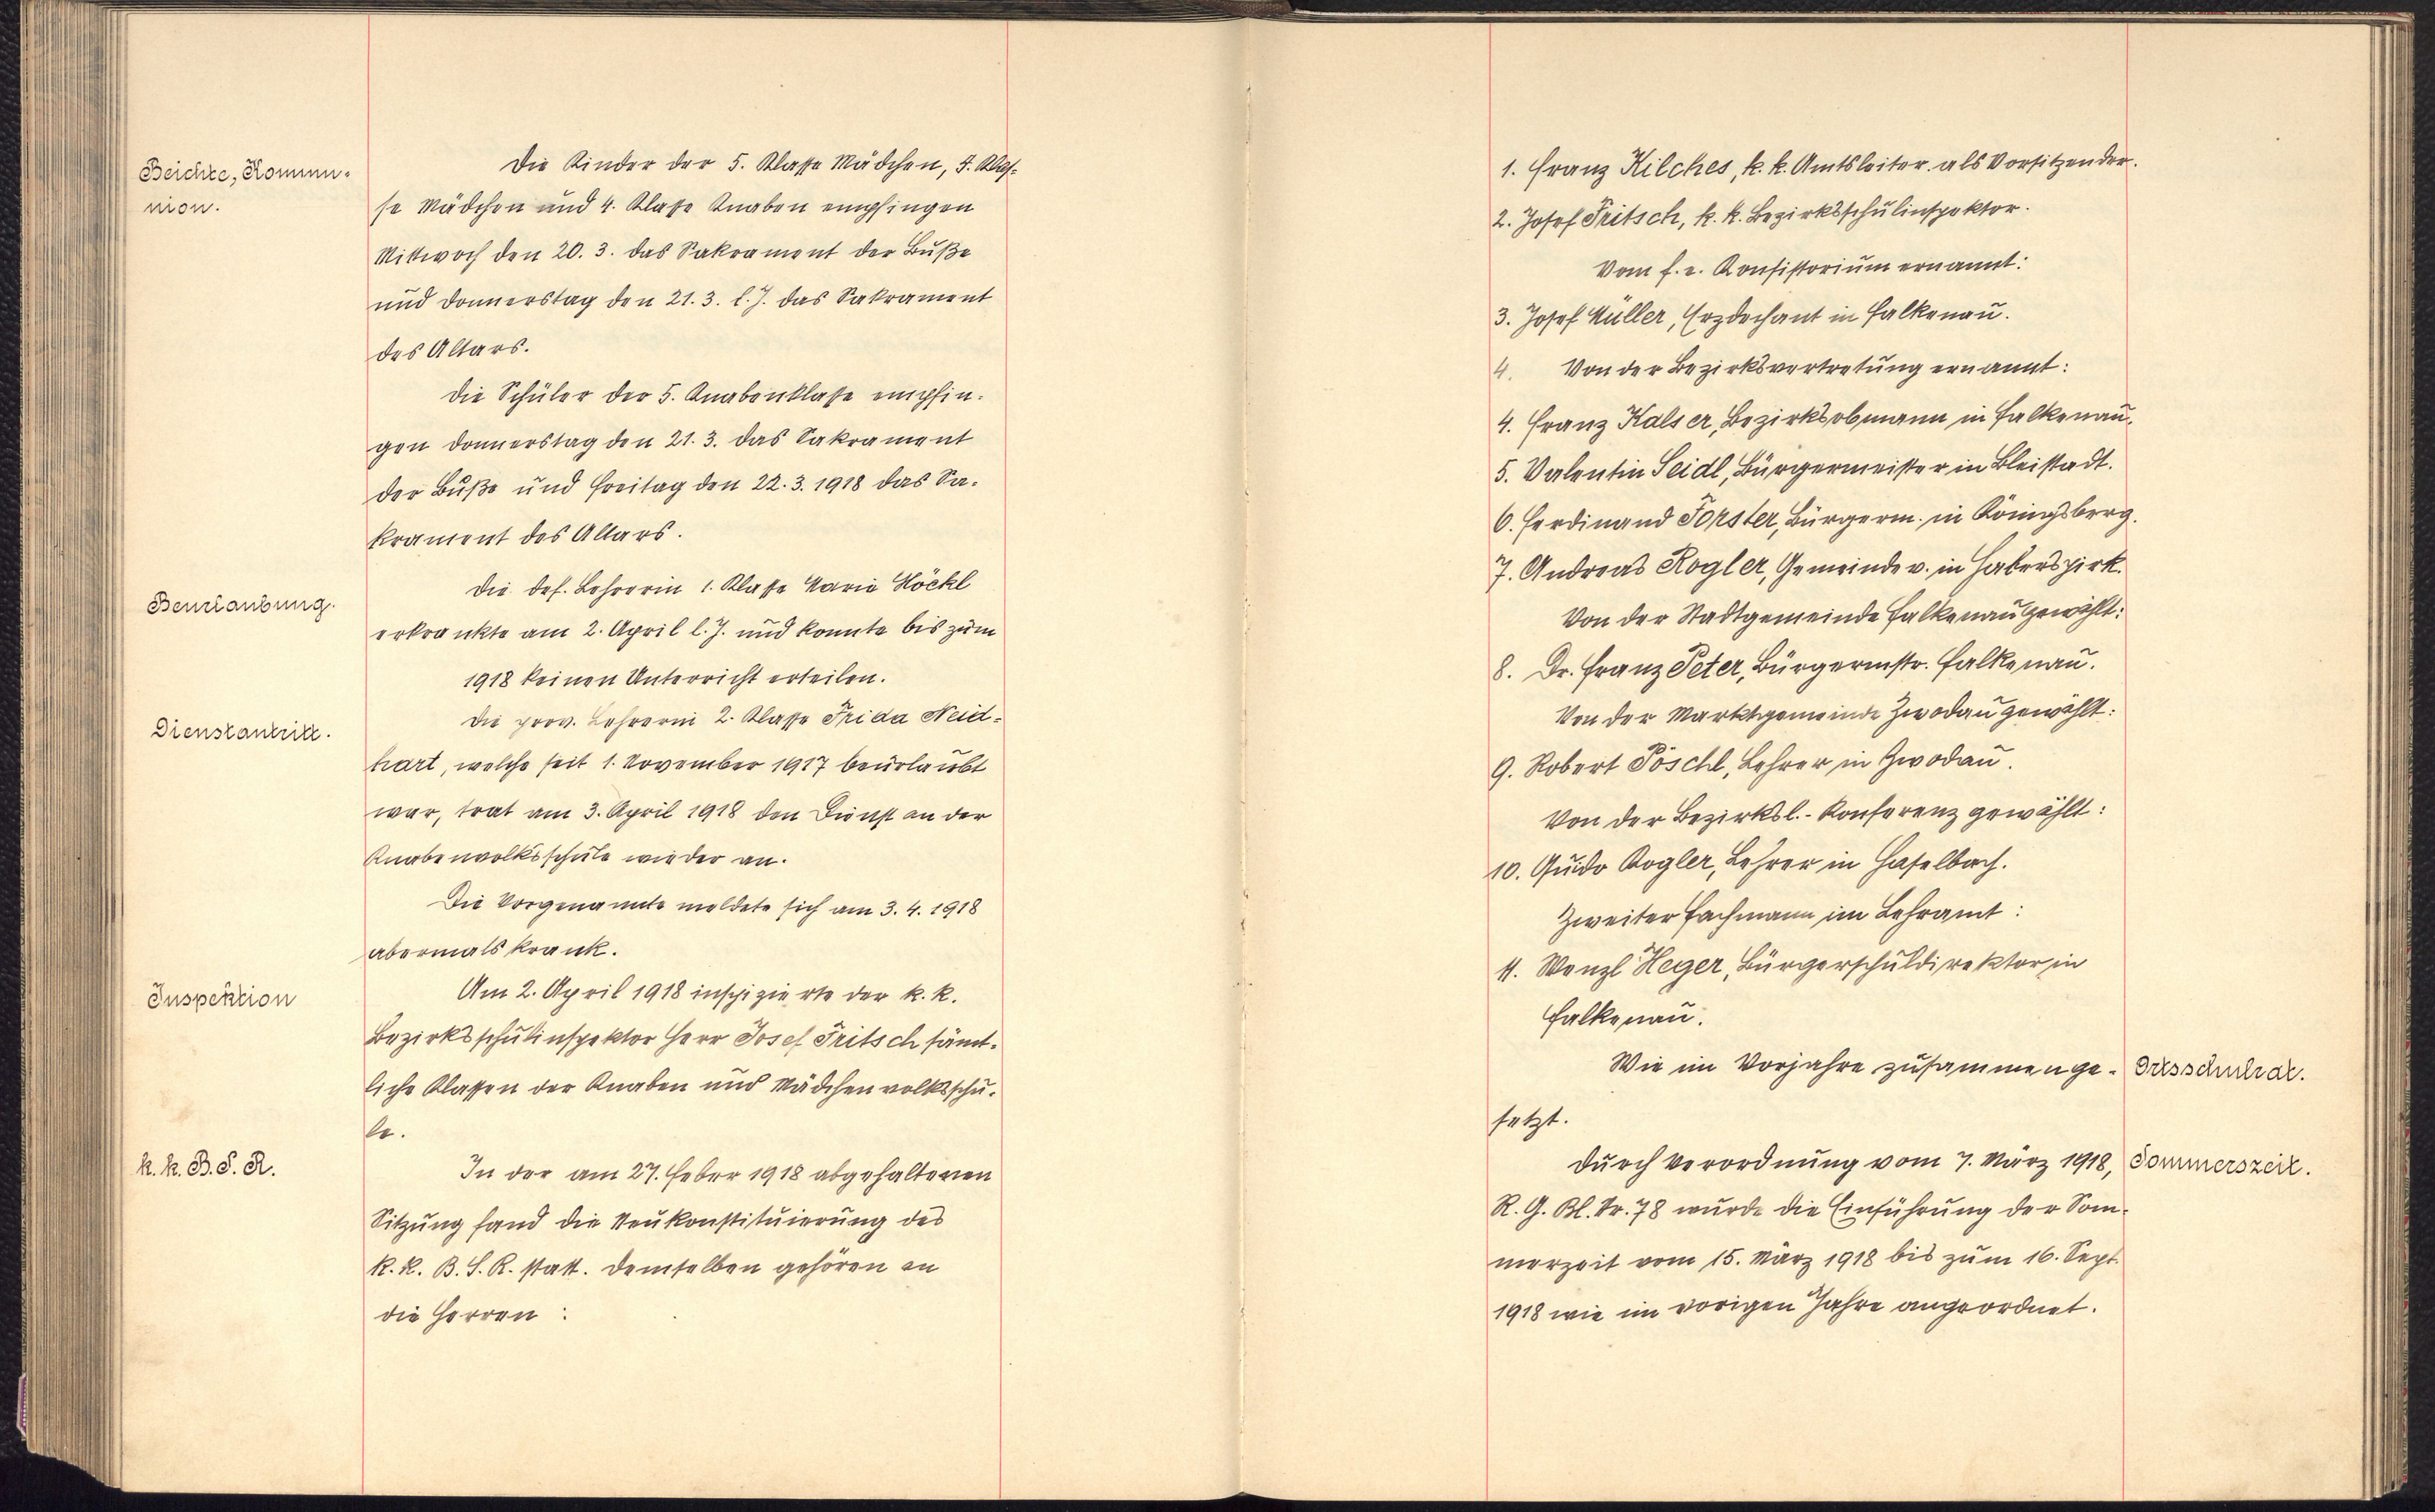 Beichte, Kommu-
nion.
Die Kinder der 5. Klasse Mädchen, 4. Klas-
se Mädchen und 4. Klasse Knaben empfingen
Mittwoch den 20. 3. das Sakrament der Buße
und Donnerstag den 21. 3. l. J. das Sakrament
des Altars.
Die Schüler der 5. Knabenklasse empfin-
gen Donnerstag den 21. 3. das Sakrament
der Buße und Freitag den 22. 3. 1918 das Sa-
krament des Altars.
Beurlaubung.
Die def. Lehrerin 1. Klasse Marie Höckl
erkrankte am 2. April l. J. und konnte bis zum
1918 keinen Unterricht erteilen.
Dienstantritt.
Die prov. Lehrerin 2. Klasse Frida Neid-
hart, welche seit 1. November 1917 beurlaubt
war, trat am 3. April 1918 den Dienst an der
Knabenvolksschule wieder an.
Die Vorgenannte meldete sich am 3. 4. 1918
abermals krank.
Inspektion
Am 2. April 1918 inspizierte der k. k.
Bezirksschulinspektor Herr Josef Fritsch sämt-
liche Klassen der Knaben und Mädchenvolksschu-
le.
k. k. B. S. R.
In der am 27. Feber 1918 abgehaltenen
Sitzung fand die Neukonstituierung des
k. k. B. S. R. statt. Demselben gehören an
die Herren :
1. Franz Hilches, k. k. Amtsleiter als Vorsitzender.
2. Josef Fritsch, k. k. Bezirksschulinspektor.
Vom f. e. Konsistorium ernannt:
3. Josef Müller, Erzdechant in Falkenau.
4. Von der Bezirksvertretung ernannt:
4. Franz Kalser, Bezirksobmann in Falkenau.
5. Valentin Seidl, Bürgermeister in Bleistadt.
6. Ferdinand Forster, Bürgerm. in Königsberg.
7. Andreas Rogler, Gemeindev. in Haberspirk.
Von der Stadtgemeinde Falkenau gewählt:
8. Dr. Franz Peter, Bürgermstr. Falkenau.
Von der Marktgemeinde Zwodau gewählt:
9. Robert Pöschl, Lehrer in Zwodau.
Von der Bezirksl.-Konferenz gewählt:
10. Guido Rogler, Lehrer in Haselbach.
Zweiter Fachmann im Lehramt:
11. Wenzl Heger, Bürgerschuldirektor in
Falkenau.
Wie im Vorjahre zusammenge-
setzt.
Ortsschulrat.
Durch Verordnung vom 7. März 1918,
R. G. Bl. Nr. 78 wurde die Einführung der Som-
merzeit vom 15. März 1918 bis zum 16. Sept.
1918 wie im vorigen Jahre angeordnet.
Sommerszeit.